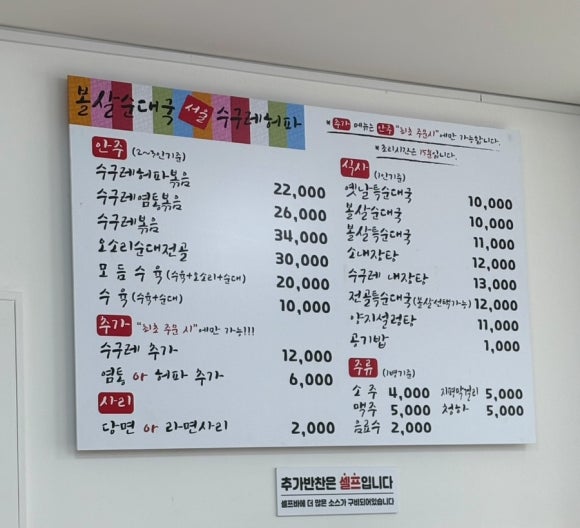 볼살순대국 서울 수구레허파
*추가 메뉴는 안주 "최초 주문시"에만 가능합니다.
*조리시간은 15분입니다.
안주 (2~3인기준)
수구레허파볶음 22,000
수구레염통볶음 26,000
수구레볶음 34,000
오소리순대전골 30,000
모듬수육(수육+오소리+순대) 20,000
수육(수육+순대) 10,000
추가 "최초 주문시"에만 가능!!!
수구레 추가 12,000
염통 or 허파 추가 6,000
사리
당면 or 라면사리 2,000
식사 (1인기준)
옛날특순대국 10,000
볼살순대국 10,000
볼살특순대국 11,000
소내장탕 12,000
수구레 내장탕 13,000
전골특순대국(볼살선택가능) 12,000
양지설렁탕 11,000
공기밥 1,000
주류 (1병기준)
소주 4,000 지평막걸리 5,000
맥주 5,000 청하 5,000
음료수 2,000
추가반찬은 셀프입니다
셀프바에 더 많은 소스가 구비되어있습니다